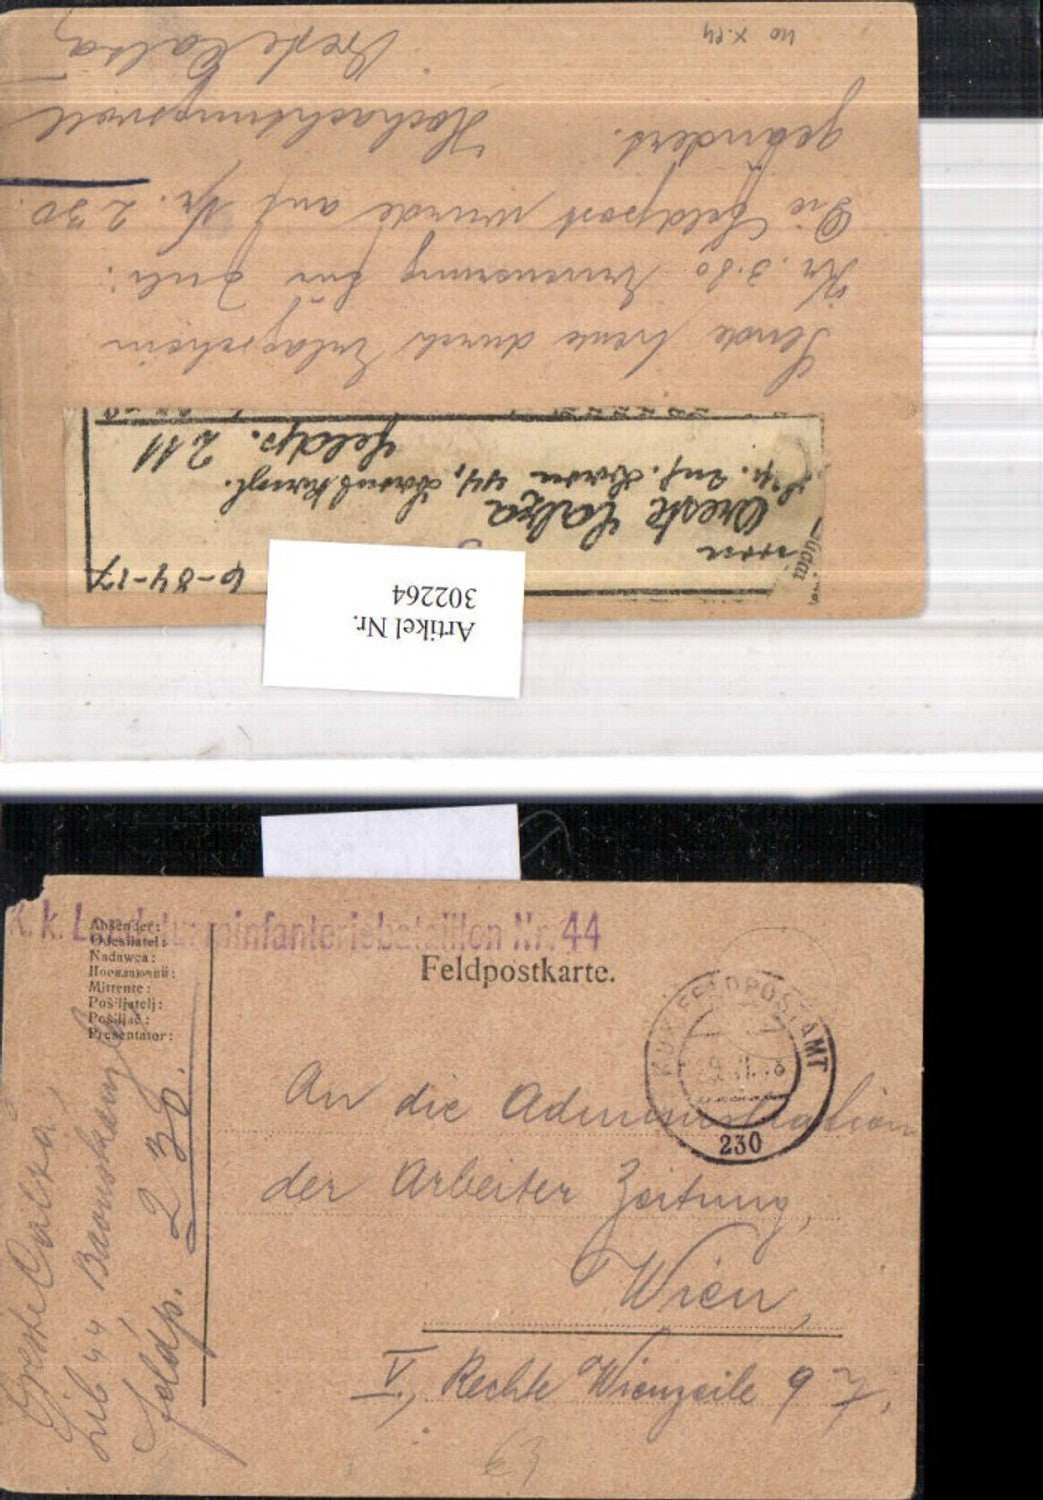 40 X.24
Sende heute durch Erlagschein
Kr. 3.80 Erneuerung für Juli.
Die Feldpost wurde auf Nr. 230
geändert.
Hochachtungsvoll
Oreste Calza
6-84-17
von
Oreste Calza
Inf. Baon 44, Baonskanzl.
Feldp. 211
Artikel Nr.
302264
k. k. Landsturminfanteriebataillon Nr. 44
Absender:
Odesílatel:
Nadawca:
Посилаючий:
Mittente:
Pošiljatelj:
Pošiljač:
Presentator:
Feldpostkarte.
K.U.K. FELDPOSTAMT
230
An die Administration
der Arbeiter Zeitung,
Wien,
V., Rechte Wienzeile 97,
Oreste Calza,
44 Baonskanzl.
Feldp. 230.
63